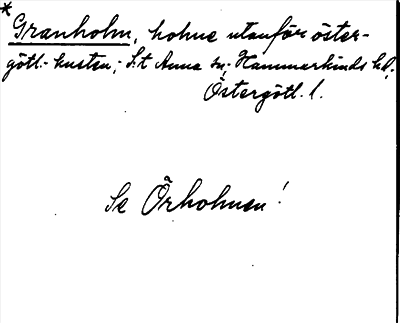 * Granholm, holme utanför öster-
götl.-kusten; S:t Anna sn; Hammarkinds hd,
Östergötl. l.
Se Örholmen!